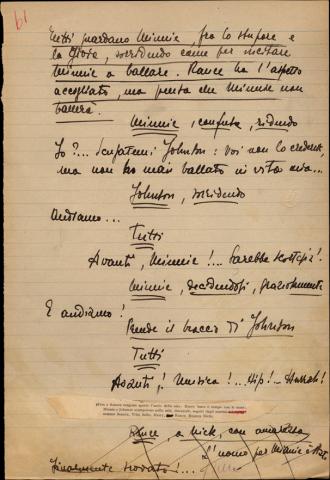 61
Tutti guardano Minnie, fra lo stupore e
la gioia, sorridendo come per incitare
Minnie a ballare. Rance ha l'aspetto
accigliato, ma pensa che Minnie non
ballerà.
Minnie, confusa, ridendo
Io?... Scusatemi Johnson: voi non lo credereste,
ma non ho mai ballato in vita mia...
Johnson, sorridendo
Andiamo...
Tutti
Avanti, Minnie!... Sarebbe scortesia!
Minnie, decidendosi, graziosamente
E andiamo!
Prende il braccio di Johnson
Tutti
Avanti! Musica!... Hip!... Hurrah!
Rance, a Nick, con amarezza
L'uomo per Minnie è
Finalmente trovato!...